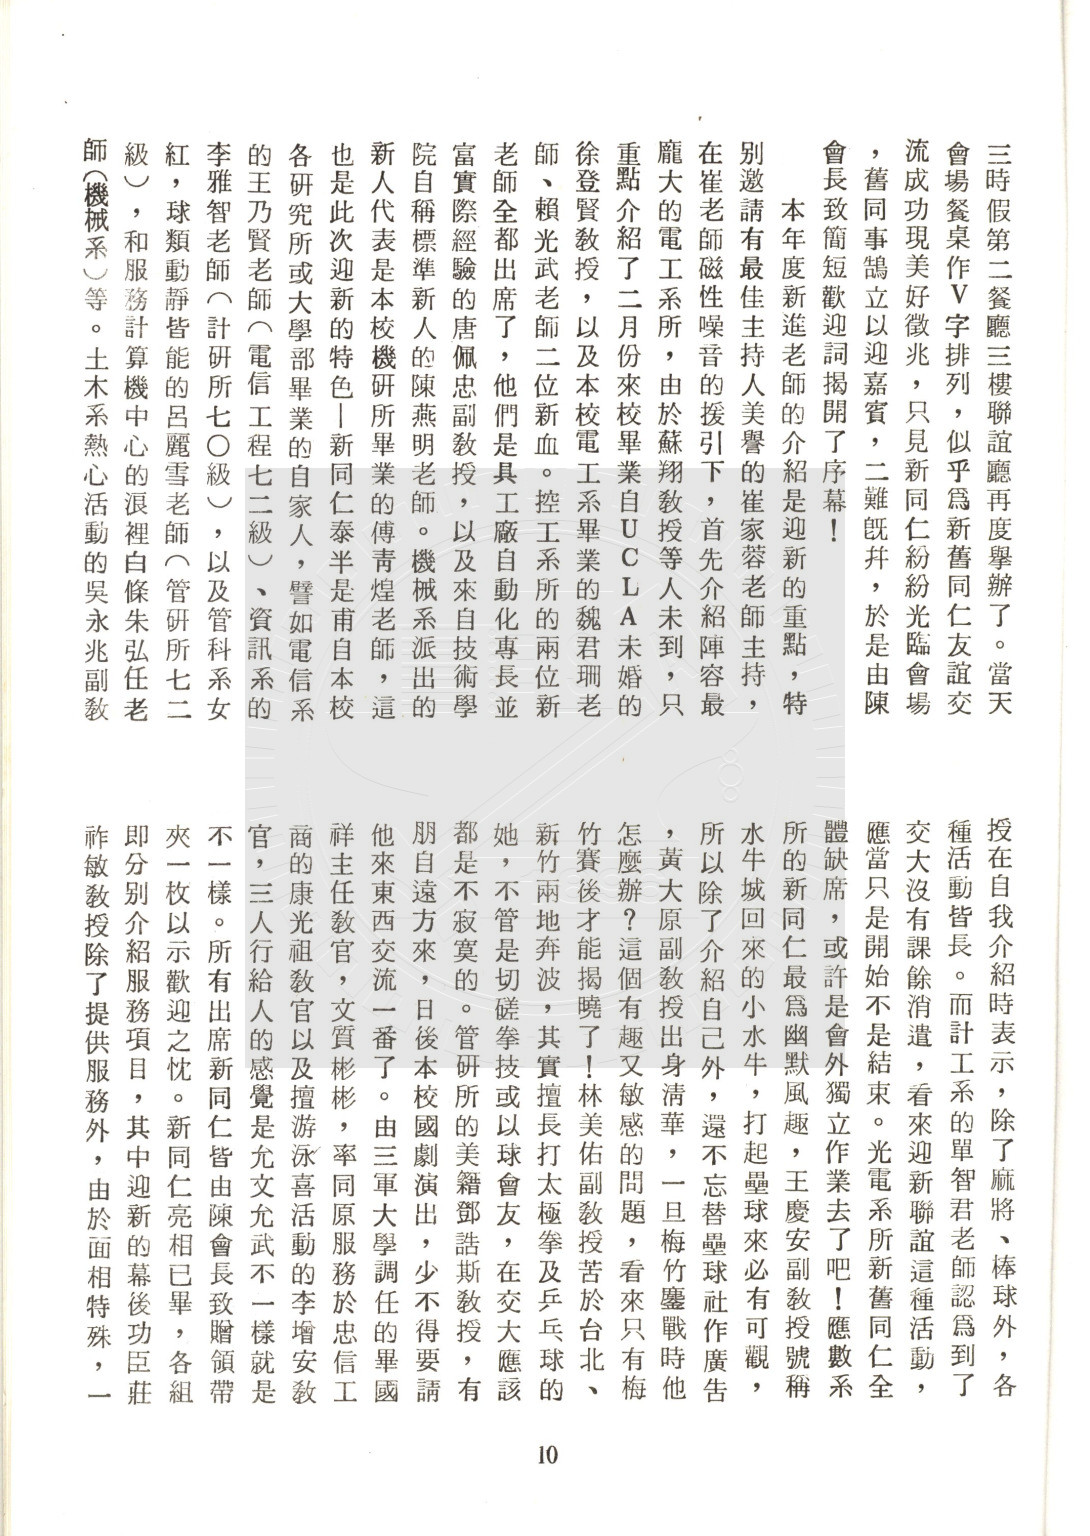 三時假第二餐廳三樓聯誼廳再度舉辦了。當天
會場餐桌作V字排列，似乎為新舊同仁友誼交
流成功現美好徵兆，只見新同仁紛紛光臨會場
，舊同事鵠立以迎嘉賓，二難既幷，於是由陳
會長致簡短歡迎詞揭開了序幕！
本年度新進老師的介紹是迎新的重點，特
別邀請有最佳主持人美譽的崔家蓉老師主持，
在崔老師磁性噪音的援引下，首先介紹陣容最
龐大的電工系所，由於蘇翔教授等人未到，只
重點介紹了二月份來校畢業自UCLA未婚的
徐登賢教授，以及本校電工系畢業的魏君珊老
師、賴光武老師二位新血。控工系所的兩位新
老師全都出席了，他們是具工廠自動化專長並
富實際經驗的唐佩忠副教授，以及來自技術學
院自稱標準新人的陳燕明老師。機械系派出的
新人代表是本校機研所畢業的傅靑煌老師，這
也是此次迎新的特色—新同仁泰半是甫自本校
各研究所或大學部畢業的自家人，譬如電信系
的王乃賢老師（電信工程七二級）、資訊系的
李雅智老師（計研所七〇級），以及管科系女
紅，球類動靜皆能的呂麗雪老師（管研所七二
級），和服務計算機中心的浪裡白條朱弘任老
師（機械系）等。土木系熱心活動的吳永兆副敎
授在自我介紹時表示，除了麻將、棒球外，各
種活動皆長。而計工系的單智君老師認為到了
交大沒有課餘消遣，看來迎新聯誼這種活動，
應當只是開始不是結束。光電系所新舊同仁全
體缺席，或許是會外獨立作業去了吧！應數系
所的新同仁最為幽默風趣，王慶安副教授號稱
水牛城回來的小水牛，打起壘球來必有可觀，
所以除了介紹自己外，還不忘替壘球社作廣告
，黃大原副教授出身淸華，一旦梅竹鏖戰時他
怎麼辦？這個有趣又敏感的問題，看來只有梅
竹賽後才能揭曉了！林美佑副教授苦於台北、
新竹兩地奔波，其實擅長打太極拳及乒乓球的
她，不管是切磋拳技或以球會友，在交大應該
都是不寂寞的。管研所的美籍鄧誥斯教授，有
朋自遠方來，日後本校國劇演出，少不得要請
他來東西交流一番了。由三軍大學調任的畢國
祥主任教官，文質彬彬，率同原服務於忠信工
商的康光祖教官以及擅游泳喜活動的李增安教
官，三人行給人的感覺是允文允武不一樣就是
不一樣。所有出席新同仁皆由陳會長致贈領帶
夾一枚以示歡迎之忱。新同仁亮相已畢，各組
即分別介紹服務項目，其中迎新的幕後功臣莊
祚敏教授除了提供服務外，由於面相特殊，一
10